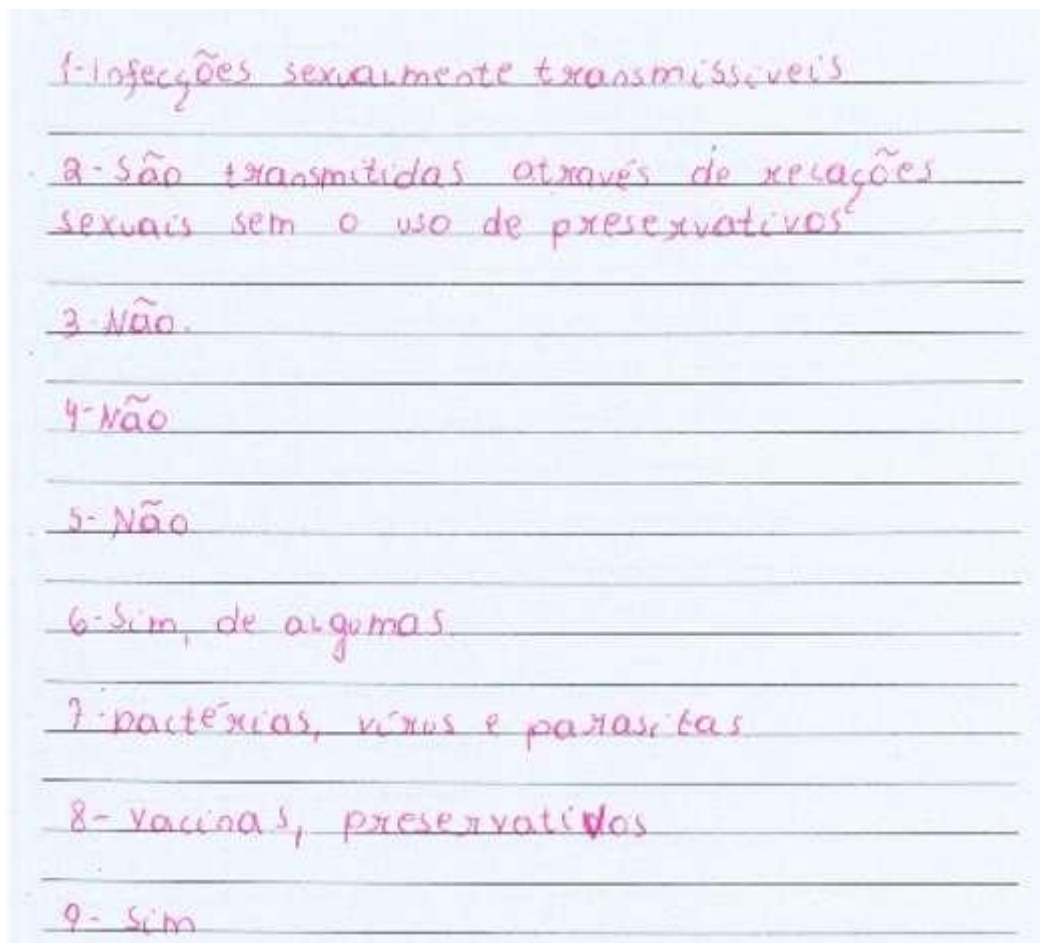 1-Infecções sexualmente transmissíveis
2-São transmitidas através de relações
sexuais sem o uso de preservativos
3-Não.
4-Não
5-Não
6-Sim, de algumas.
7-bactérias, vírus e parasitas
8-Vacinas, preservativos
9-Sim